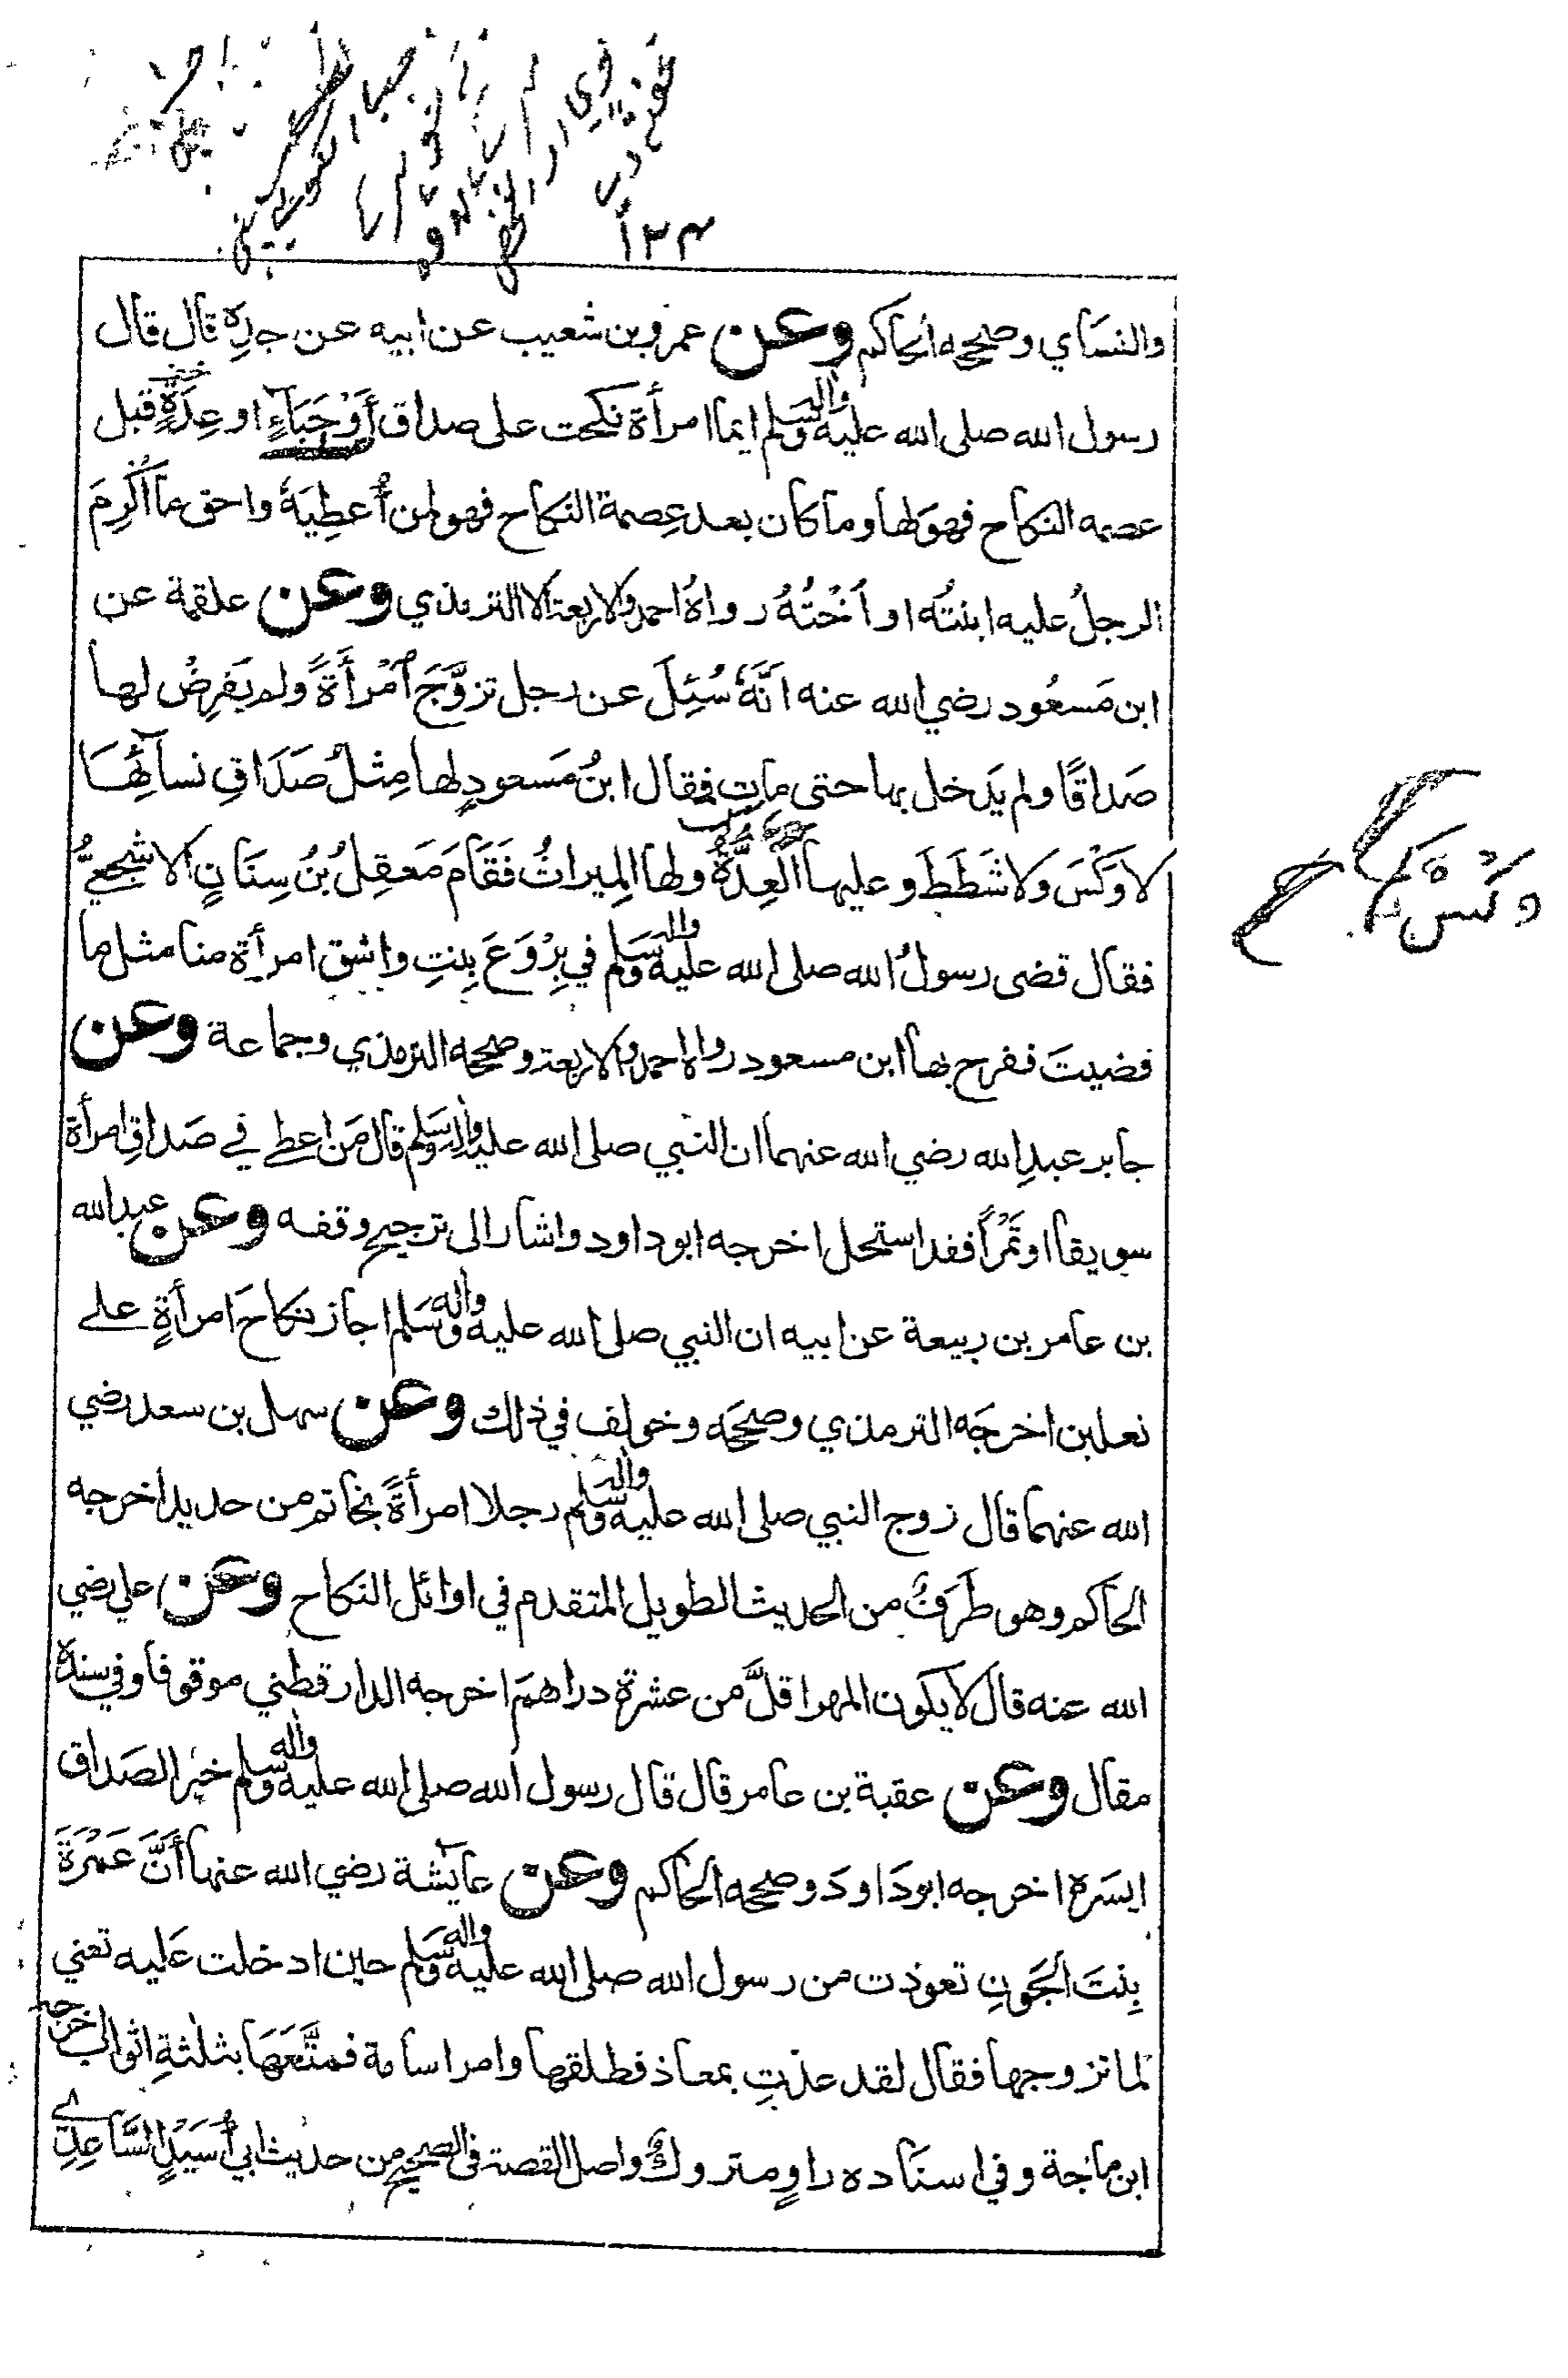 ١٣٤
والنساي وصححه الحاكم وعن عمرو بن شعيب عن ابيه عن جدِه قال قال
رسول الله صلى الله عليه واله وسلم ايما امرأة نكحت على صداق أَوْحَبَاءٍ او عِدَةٍ قبل
عصمه النكاح فهو لها وما كان بعد عِصمة النكاح فهو لمن أُعطِيَهُ واحق ما أُكْرِمَ
الرجلُ عليه ابنتُه او أُخْتُهُ رواهُ احمد والاربعة الا الترمذي وعن علقمة عن
ابن مَسعُود رضي الله عنه انَّهُ سُئِلَ عن رجل تزوَّجَ امْرأَةً ولم يَفرِضْ لها
صَداقًا ولم يَدخل بها حتى مات فقال ابنُ مَسعودٍ لها مِثلُ صَدَاقِ نسآئِهَا
لاوَكْسَ ولا شَطَطَ وعليها العِدَّةُ ولها المِيراثُ فَقَامَ مَعقِلُ بْنُ سِنَانٍ الاشجعيُّ
فقال قضى رسولُ الله صلى الله عليه واله وسَلم في بِرْوَعَ بِنتِ واشق امرأة منا مثل ما
قضيتَ ففرح بها ابن مسعود رواه احمد والاربعة وصححه الترمذي وجماعة وعن
جابر عبدِ الله رضي الله عنهما ان النبي صلى الله عليه واله وسلم قال مَن اعطى في صَداقِ امرأة
سويقا اوتَمْراً فقد استحل اخرجه ابوداود واشار الى ترجيح وقفه وعن عبدالله
بن عامر بن ربيعة عن ابيه ان النبي صلى الله عليه واله وسَلم اجاز نكاحَ امرأةٍ على
نعلين اخرجَه الترمذي وصححَه وخولف في ذلك وعن سهل بن سعد رضي
الله عنهما قال زوج النبي صلى الله عليه واله وسلم رجلا امرأةً بخاتم من حديد اخرجه
الحاكم وهو طَرَفٌ من الحديث الطويل المتقدم في اوائل النكاح وعن علي رضي
الله عنه قال لا يكون المهر اقلَّ من عشرة دراهمَ اخرجه الدارقطني موقوفا وفي سنده
مقال وعن عقبة بن عامر قال قال رسول الله صلى الله عليه واله وسلم خير الصَداق
ايسَره اخرجه ابودَاودَ وصححه الحاكم وعن عايشة رضي الله عنها أَنَّ عَمْرَةَ
بِنتَ الجَونِ تعوذت من رسول الله صلى الله عليه واله وسَلم حين ادخلت عَليه تعني
لما تزوجها فقال لقد عذتِ بمعاذ فطلقها وامر اسامة فمتَّعَهَا بثلثةِ اثواب اخرجه
ابن ماجة وفي اسنَاده راوٍ متروكٌ واصل القصة في الصحيح من حديث ابي أُسَيْدٍ السَّاعِدِي